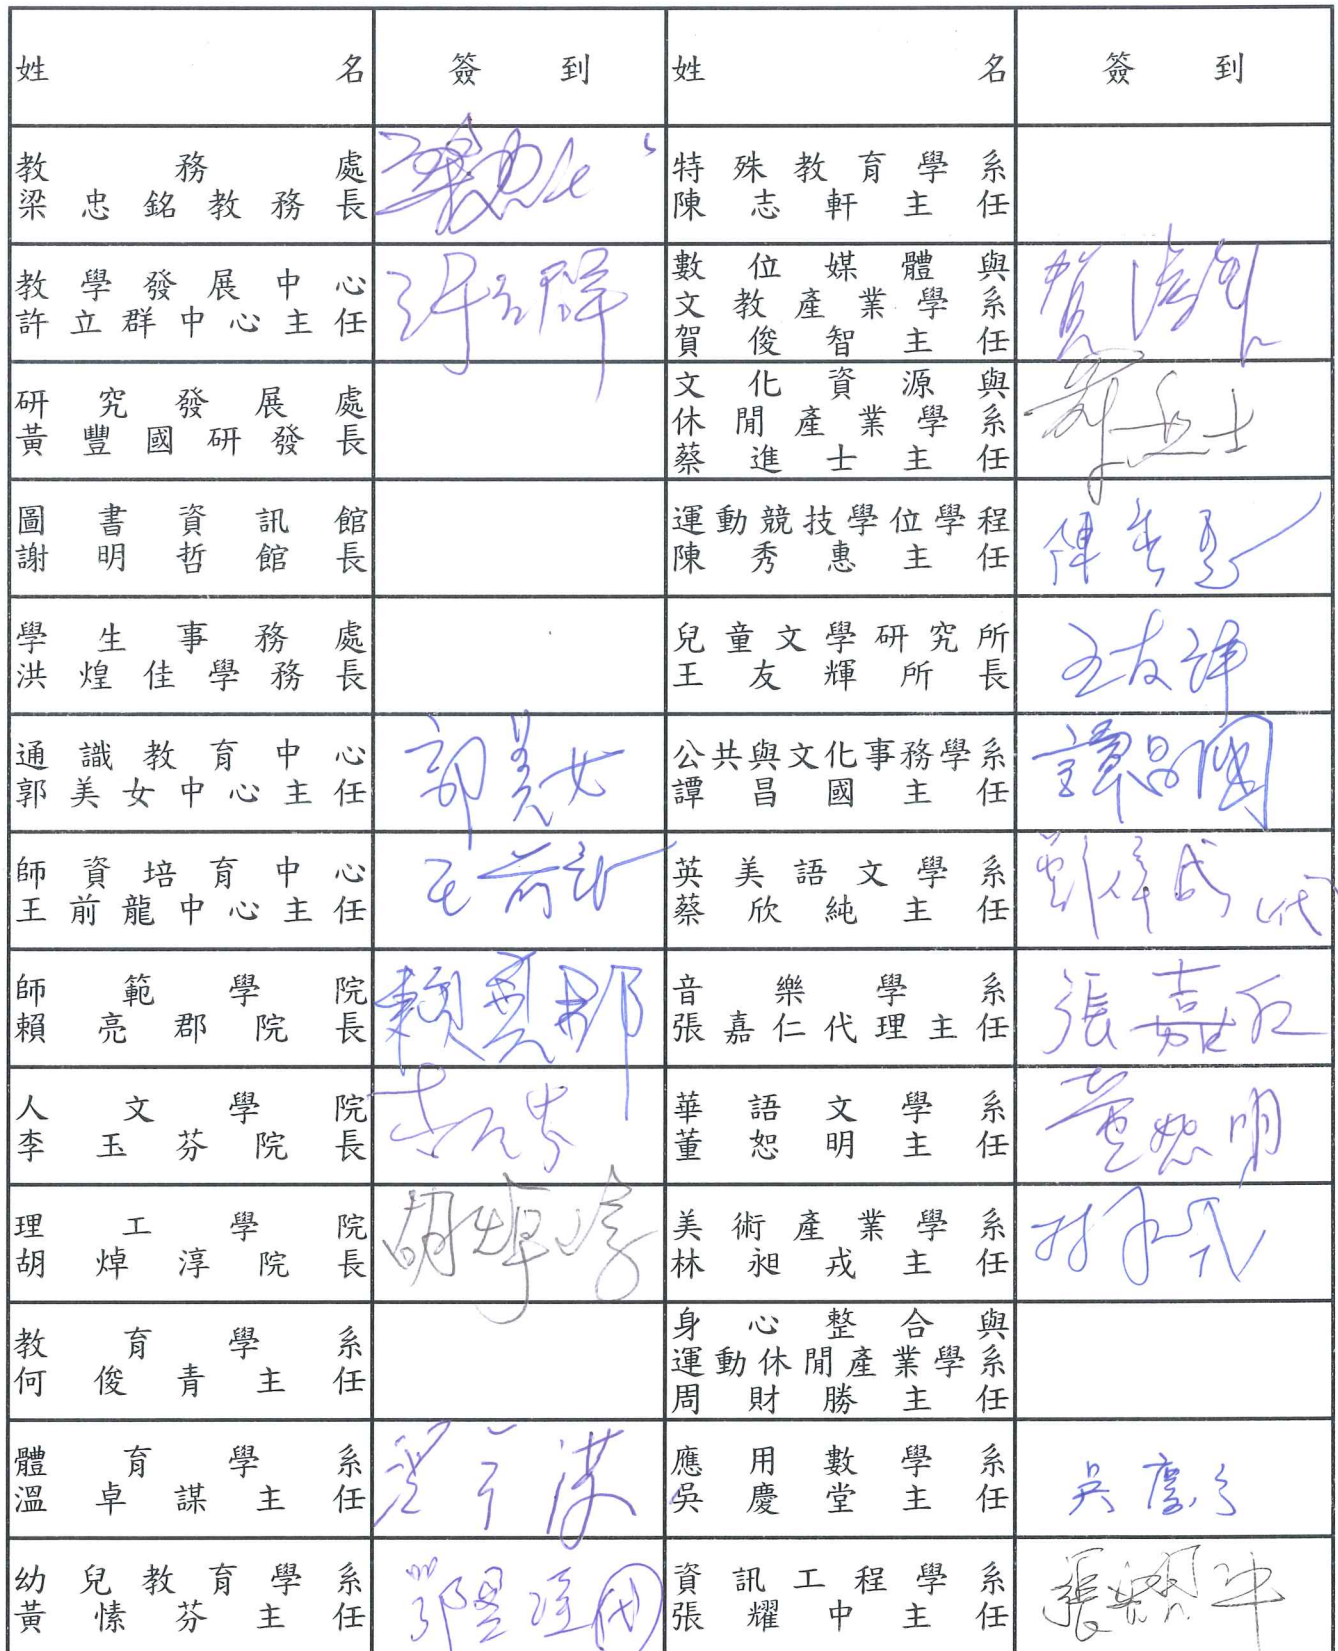 姓名 簽到 姓名 簽到
教務處
梁忠銘教務長
特殊教育學系
陳志軒主任
教學發展中心
許立群中心主任
許立群
數位媒體與
文教產業學系
賀俊智主任
賀俊智
研究發展處
黃豐國研發長
文化資源與
休閒產業學系
蔡進士主任
圖書資訊館
謝明哲館長
運動競技學位學程
陳秀惠主任
陳秀惠
學生事務處
洪煌佳學務長
兒童文學研究所
王友輝所長
王友輝
通識教育中心
郭美女中心主任
郭美女
公共與文化事務學系
譚昌國主任
譚昌國
師資培育中心
王前龍中心主任
王前龍
英美語文學系
蔡欣純主任
代
師範學院
賴亮郡院長
賴亮郡
音樂學系
張嘉仁代理主任
張嘉仁
人文學院
李玉芬院長
華語文學系
董恕明主任
董恕明
理工學院
胡焯淳院長
胡焯淳
美術產業學系
林昶戎主任
教育學系
何俊青主任
身心整合與
運動休閒產業學系
周財勝主任
體育學系
溫卓謀主任
應用數學系
吳慶堂主任
幼兒教育學系
黃愫芬主任
資訊工程學系
張耀中主任
張耀中